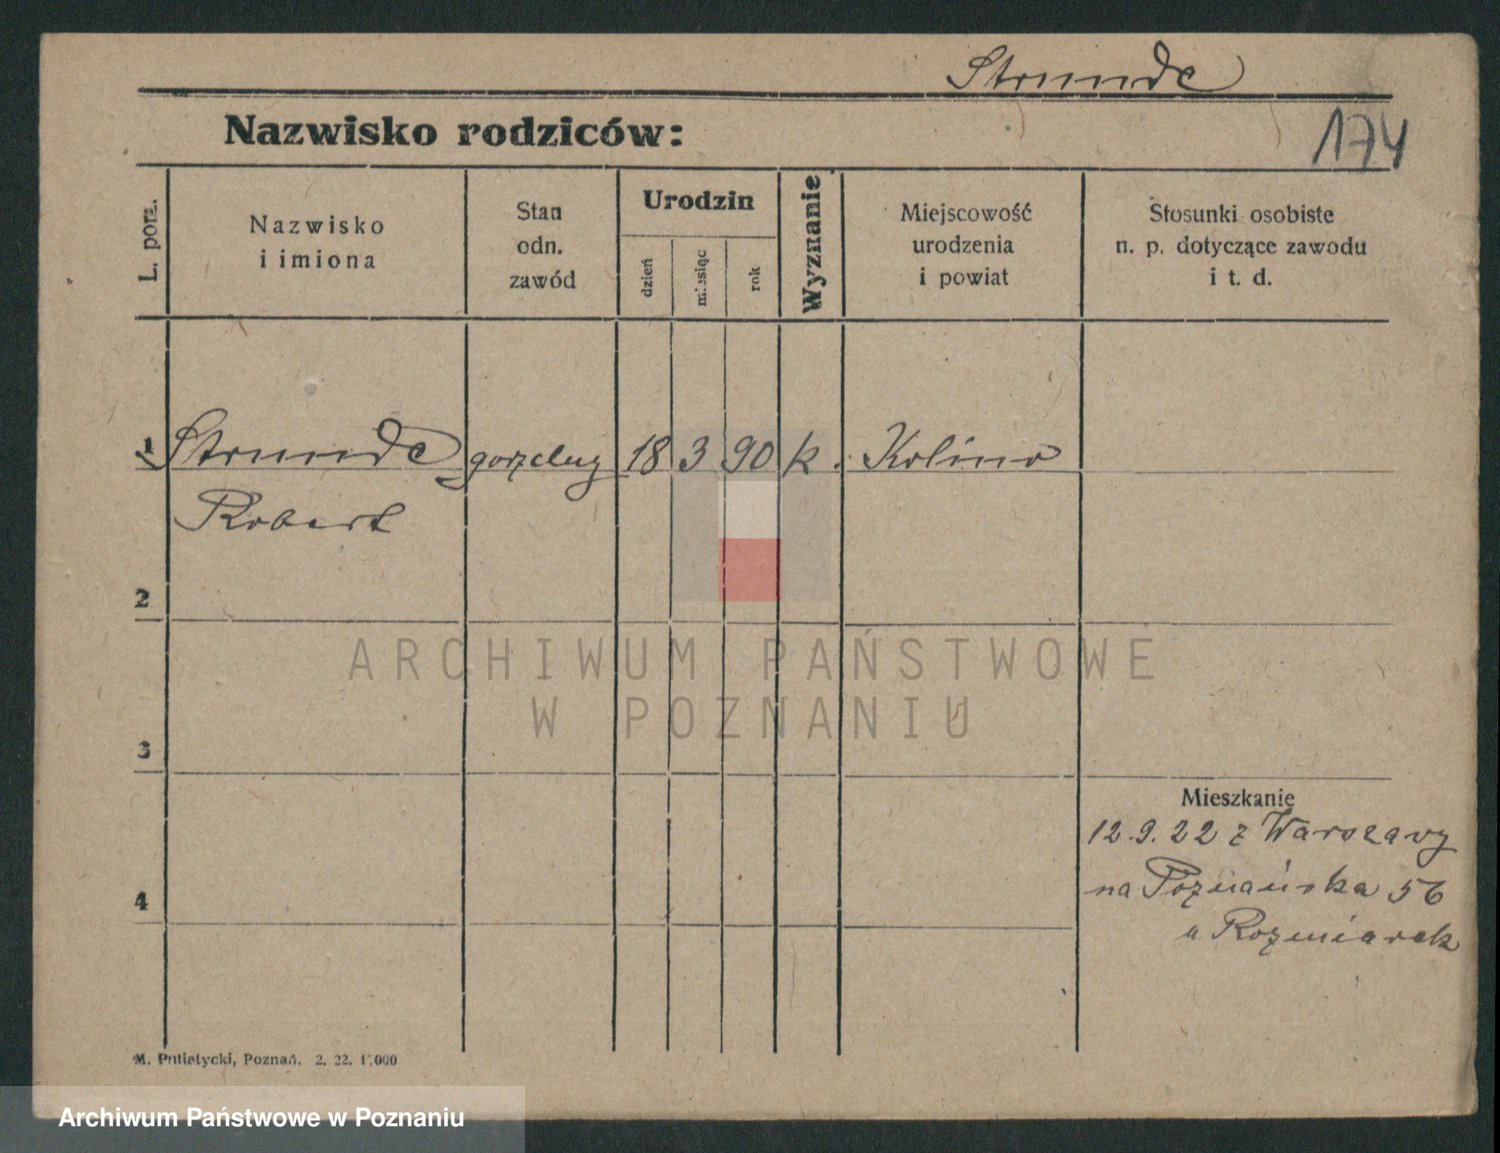 Strunde
174
Nazwisko rodziców:
L. porz.
Nazwisko
i imiona
Stan
odn.
zawód
Urodzin
dzień
miesiąc
rok
Wyznanie
Miejscowość
urodzenia
i powiat
Stosunki osobiste
n. p. dotyczące zawodu
i t. d.
1 Strunde gorzelny 18 3 90 k. Kolino
Robert
2
3
4
Mieszkanie
12.9.22 z Warszawy
na Poznańska 56
u Rozmiarek
M. Putiatycki, Poznań. 2. 22.
ARCHIWUM PAŃSTWOWE
W POZNANIU
Archiwum Państwowe w Poznaniu